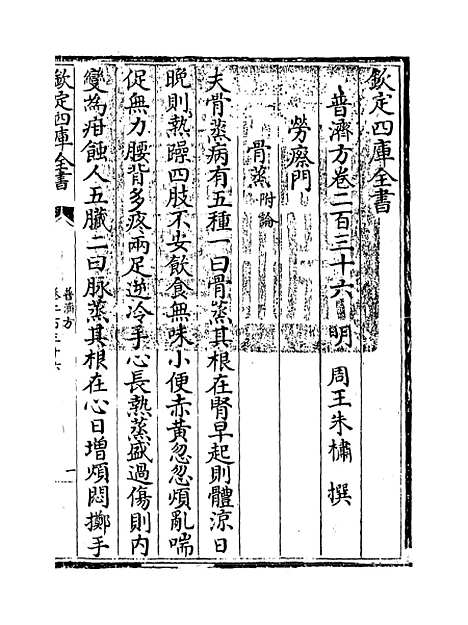 欽定四庫全書
普濟方卷二百三十六 明 周王朱橚 撰
勞瘵門
骨蒸附論
夫骨蒸病有五種一曰骨蒸其根在腎早起則體涼日
晚則熱躁四肢不安飲食無味小便赤黃忽忽煩亂喘
促無力腰背多疼兩足逆冷手心長熱蒸盛過傷則内
變為疳蝕人五臟二曰脉蒸其根在心日增煩悶擲手
欽定四庫全書
普濟方
卷二百三十六
一